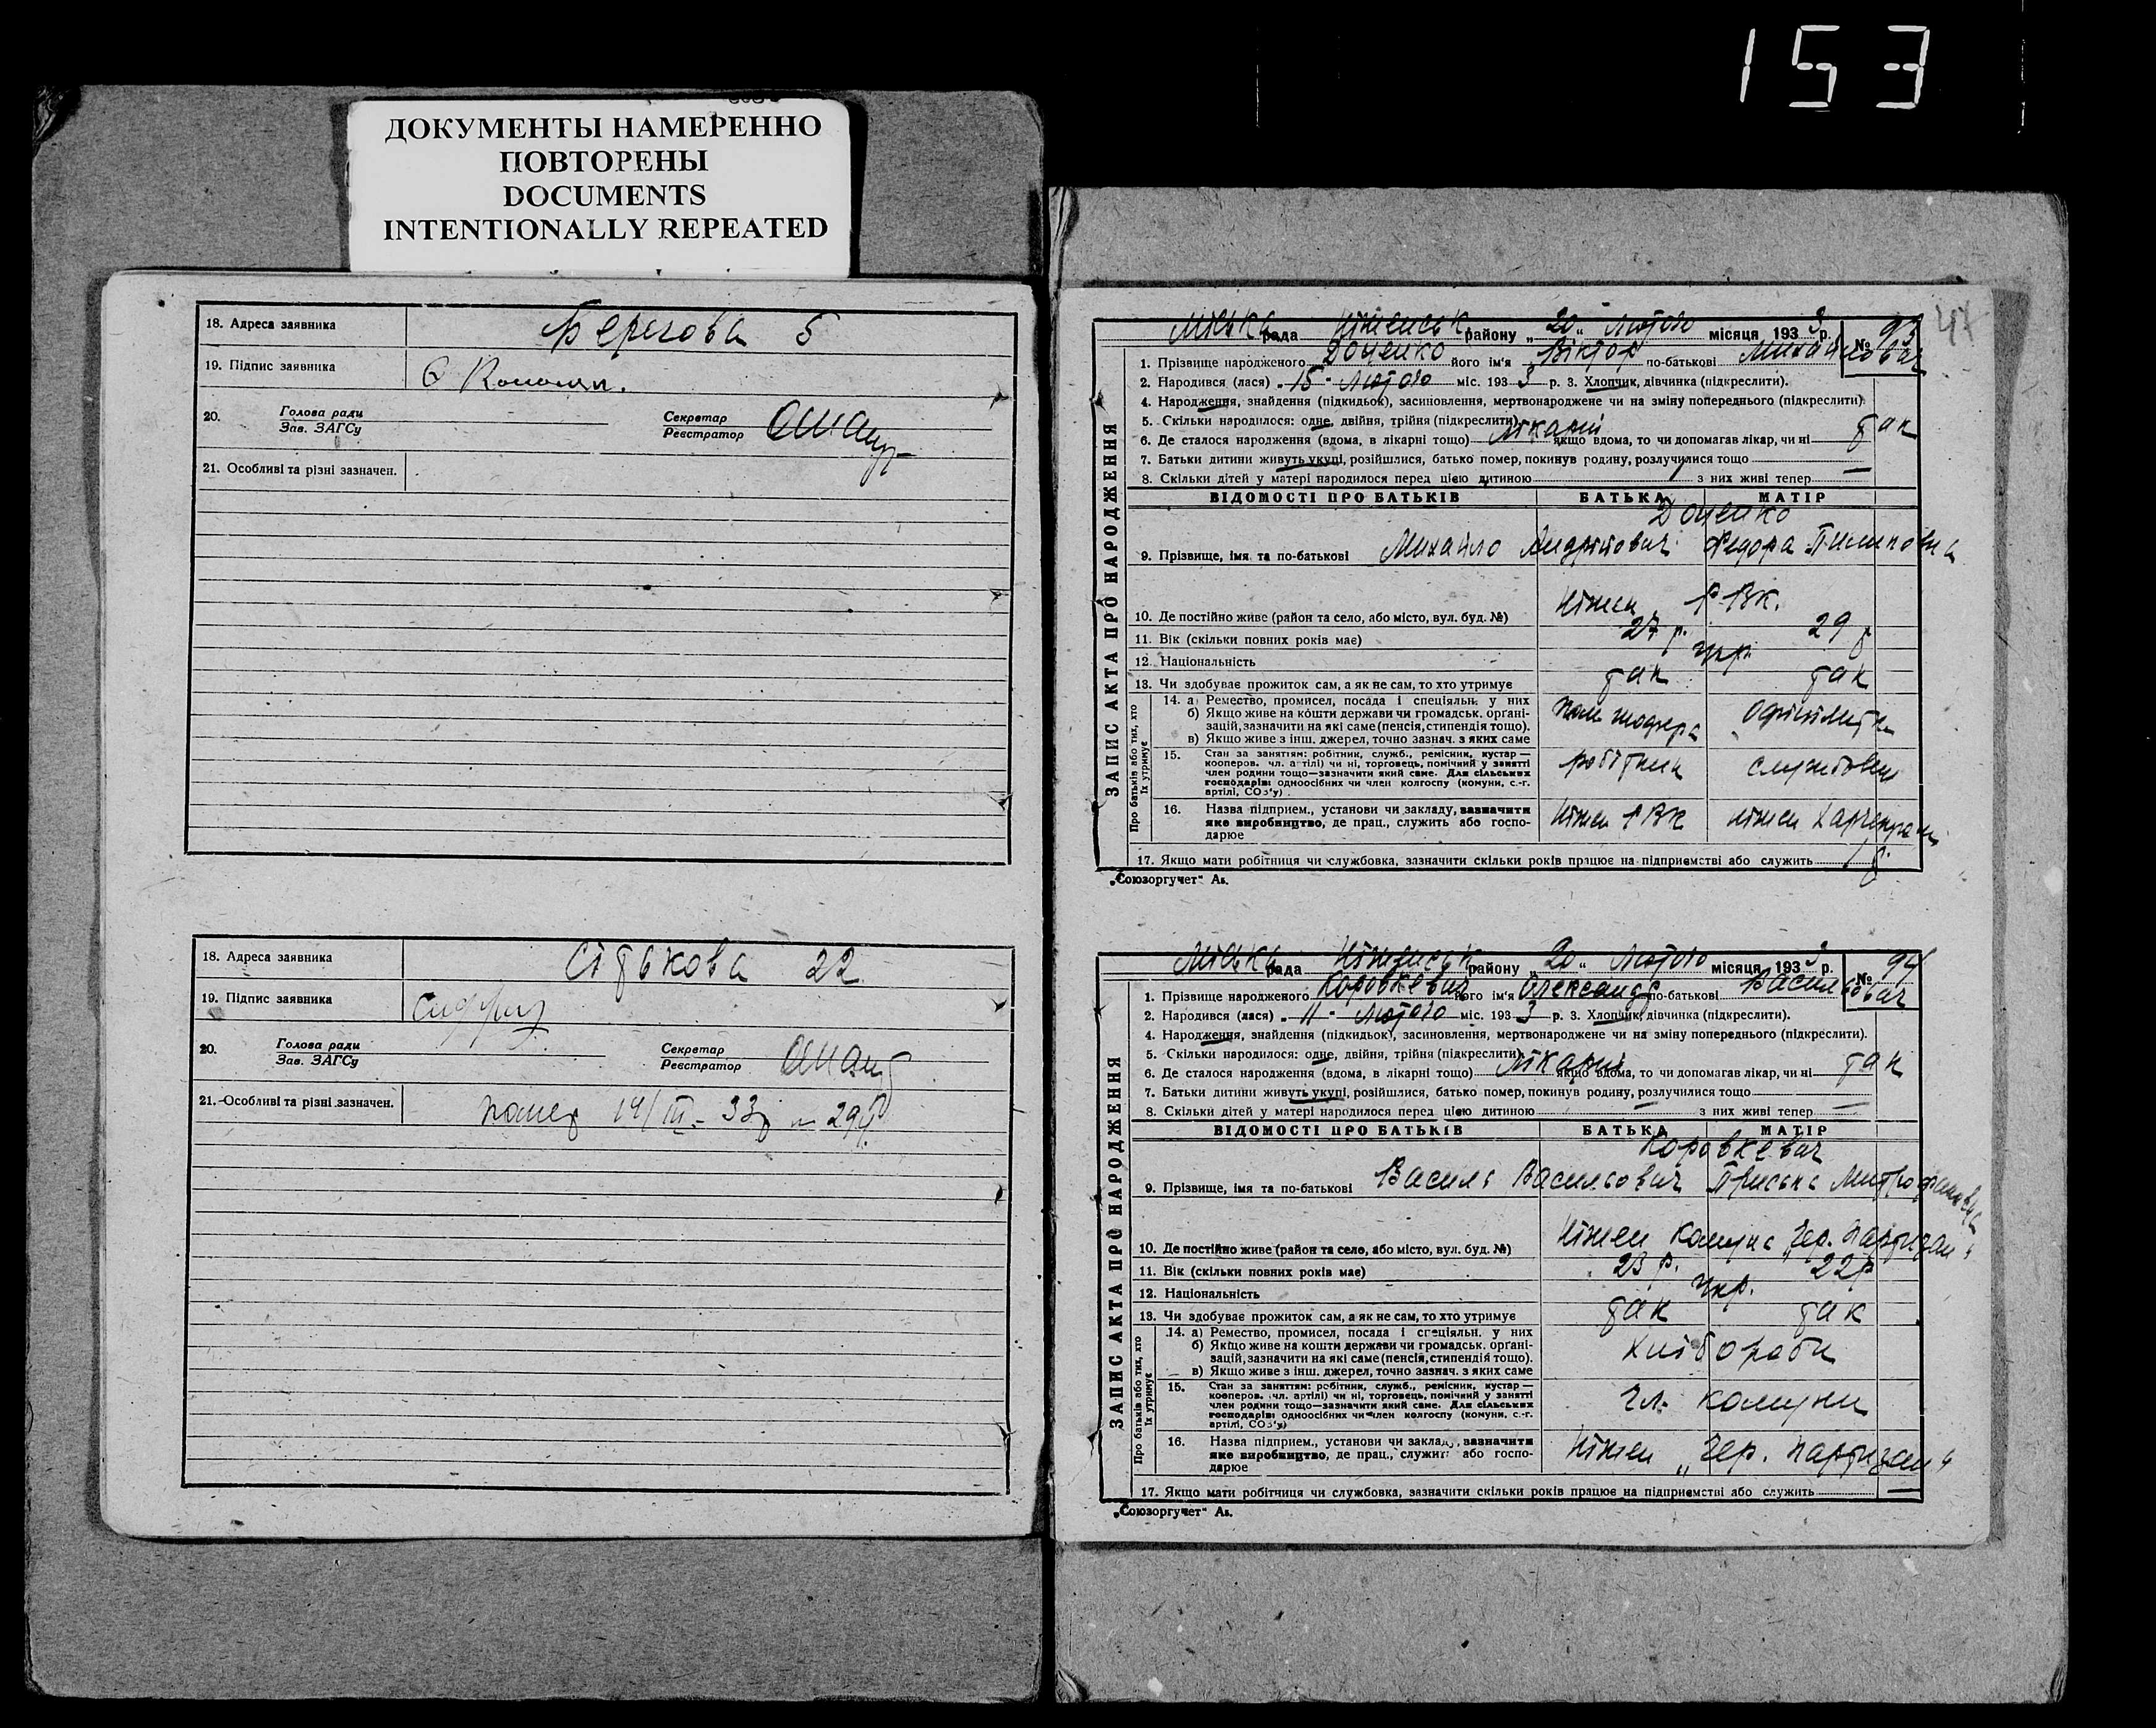 153
ДОКУМЕНТЫ НАМЕРЕННО
ПОВТОРЕНЫ
DOCUMENTS
INTENTIONALLY REPEATED
18. Адреса заявника Берегова 5
19. Підпис заявника
20. Голова ради
Зав. ЗАГСу
Секретар
Реєстратор
21. Особливі та різні зазначен.
18. Адреса заявника 22
19. Підпис заявника
20. Голова ради
Зав. ЗАГСу
Секретар
Реєстратор
21. Особливі та різні зазначен. 14/III - 33
47
ЗАПИС АКТА ПРО НАРОДЖЕННЯ
Міська рада Ніженськ. району „20“ Лютого місяця 1933 р. № 93
1. Прізвище народженого Доценко його ім'я Віктор по-батькові Михайлович
2. Народився (лася) 15 Лютого міс. 1933 р. 3. Хлопчик, дівчинка (підкреслити).
4. Народження, знайдення (підкидьок), засиновлення, мертвонароджене чи на зміну попереднього (підкреслити).
5. Скільки народилося: одне, двійня, трійня (підкреслити)
6. Де сталося народження (вдома, в лікарні тощо) лікарні якщо вдома, то чи допомагав лікар, чи ні так
7. Батьки дитини живуть укупі, розійшлися, батько помер, покинув родину, розлучилися тощо —
8. Скільки дітей у матері народилося перед цією дитиною з них живі тепер
ВІДОМОСТІ ПРО БАТЬКІВ БАТЬКА МАТІР
Доценко
9. Прізвище, імя та по-батькові Михайло Андрійович Федора Пилиповна
10. Де постійно живе (район та село, або місто, вул. буд. №) Ніжен РВК.
11. Вік (скільки повних років має) 27 р. 29 р
12. Національність укр.
13. Чи здобуває прожиток сам, а як не сам, то хто утримує так так
Про батьків або тих, хто їх утримує
14. а) Ремество, промисел, посада і спеціяльн. у них
б) Якщо живе на кошти держави чи громадськ. орґані-
зацій, зазначити на які саме (пенсія, стипендія тощо).
в) Якщо живе з інш. джерел, точно зазнач. з яких саме
пом шофера
15. Стан за заняттям: робітник, служб., ремісник, кустар —
кооперов. чл. артілі) чи ні, торговець, помічний у занятті
член родини тощо—зазначити який саме. Для сільських
господарів: одноосібних чи член колгоспу (комуни, с.-г.
артілі, СОЗ'у)
робітник службовец
16. Назва підприєм., установи чи закладу, зазначити
яке виробництво, де прац., служить або госпо-
дарює
Ніжен РВК Ніжен
17. Якщо мати робітниця чи службовка, зазначити скільки років працює на підприємстві або служить 1 р.
„Союзоргучет“ Ав.
ЗАПИС АКТА ПРО НАРОДЖЕННЯ
Міська рада Ніженськ району „20“ Лютого місяця 1933 р. № 94
1. Прізвище народженого Коровкевич його ім'я Олександр по-батькові Васильович
2. Народився (лася) 11 Лютого міс. 1933 р. 3. Хлопчик, дівчинка (підкреслити).
4. Народження, знайдення (підкидьок), засиновлення, мертвонароджене чи на зміну попереднього (підкреслити).
5. Скільки народилося: одне, двійня, трійня (підкреслити)
6. Де сталося народження (вдома, в лікарні тощо) лікарні якщо вдома, то чи допомагав лікар, чи ні так
7. Батьки дитини живуть укупі, розійшлися, батько помер, покинув родину, розлучилися тощо —
8. Скільки дітей у матері народилося перед цією дитиною — з них живі тепер —
ВІДОМОСТІ ПРО БАТЬКІВ БАТЬКА МАТІР
Коровкевич
9. Прізвище, імя та по-батькові Василь Васильович Пріська Митрофановна
10. Де постійно живе (район та село, або місто, вул. буд. №) Ніжен комуна „Чер. партизан“
11. Вік (скільки повних років має) 23 р. 22 р
12. Національність укр.
13. Чи здобуває прожиток сам, а як не сам, то хто утримує так так
Про батьків або тих, хто їх утримує
14. а) Ремество, промисел, посада і спеціяльн. у них
б) Якщо живе на кошти держави чи громадськ. орґані-
зацій, зазначити на які саме (пенсія, стипендія тощо).
в) Якщо живе з інш. джерел, точно зазнач. з яких саме
Хлібороби
15. Стан за заняттям: робітник, служб., ремісник, кустар —
кооперов. чл. артілі) чи ні, торговець, помічний у занятті
член родини тощо—зазначити який саме. Для сільських
господарів: одноосібних чи член колгоспу (комуни, с.-г.
артілі, СОЗ'у)
Чл. комуни
16. Назва підприєм., установи чи закладу, зазначити
яке виробництво, де прац., служить або госпо-
дарює
Ніжен „Чер. партизан“
17. Якщо мати робітниця чи службовка, зазначити скільки років працює на підприємстві або служить —
„Союзоргучет“ Ав.